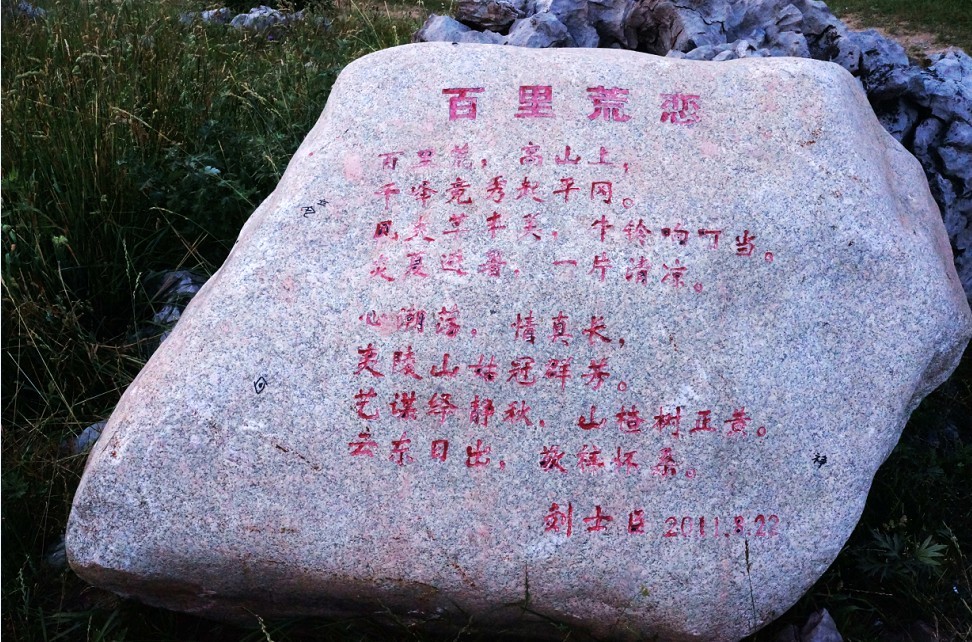 百里荒恋
百里荒，高山上，
千峰竞秀起平冈。
风大草丰美，牛铃响叮当。
炎夏避暑，一片清凉。
心潮荡，情真长，
夷陵山姑冠群芳。
艺谋绎静秋，山楂树正黄。
去东日出，桑。
刘士 2011.8.22